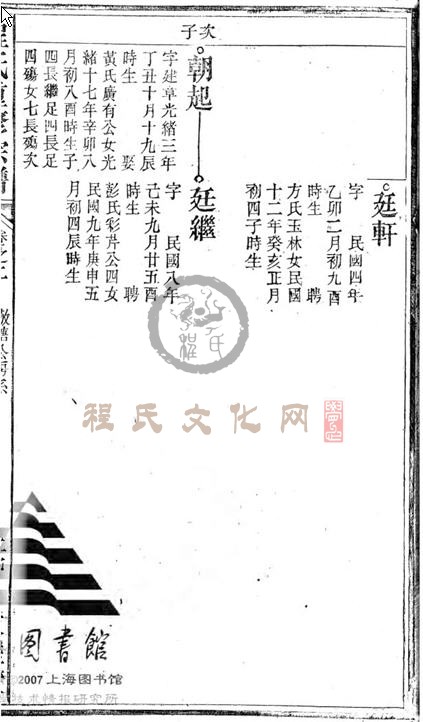 次子
廷軒
字　民國四年
乙卯二月初九酉
時生　　聘
方氏玉林女民國
十二年癸亥正月
初四子時生
朝起
字建章光緒三年
丁丑十月十九辰
時生　　娶
黃氏廣有公女光
緒十七年辛卯八
月初八酉時生子
四長繼足四長足
四殤女七長殤次
廷繼
字　民國八年
己未九月廿五酉
時生　　聘
彭氏彩芹公四女
民國九年庚申五
月初四辰時生
程氏文化网
图書館
©2007 上海图书馆
技术情报研究所